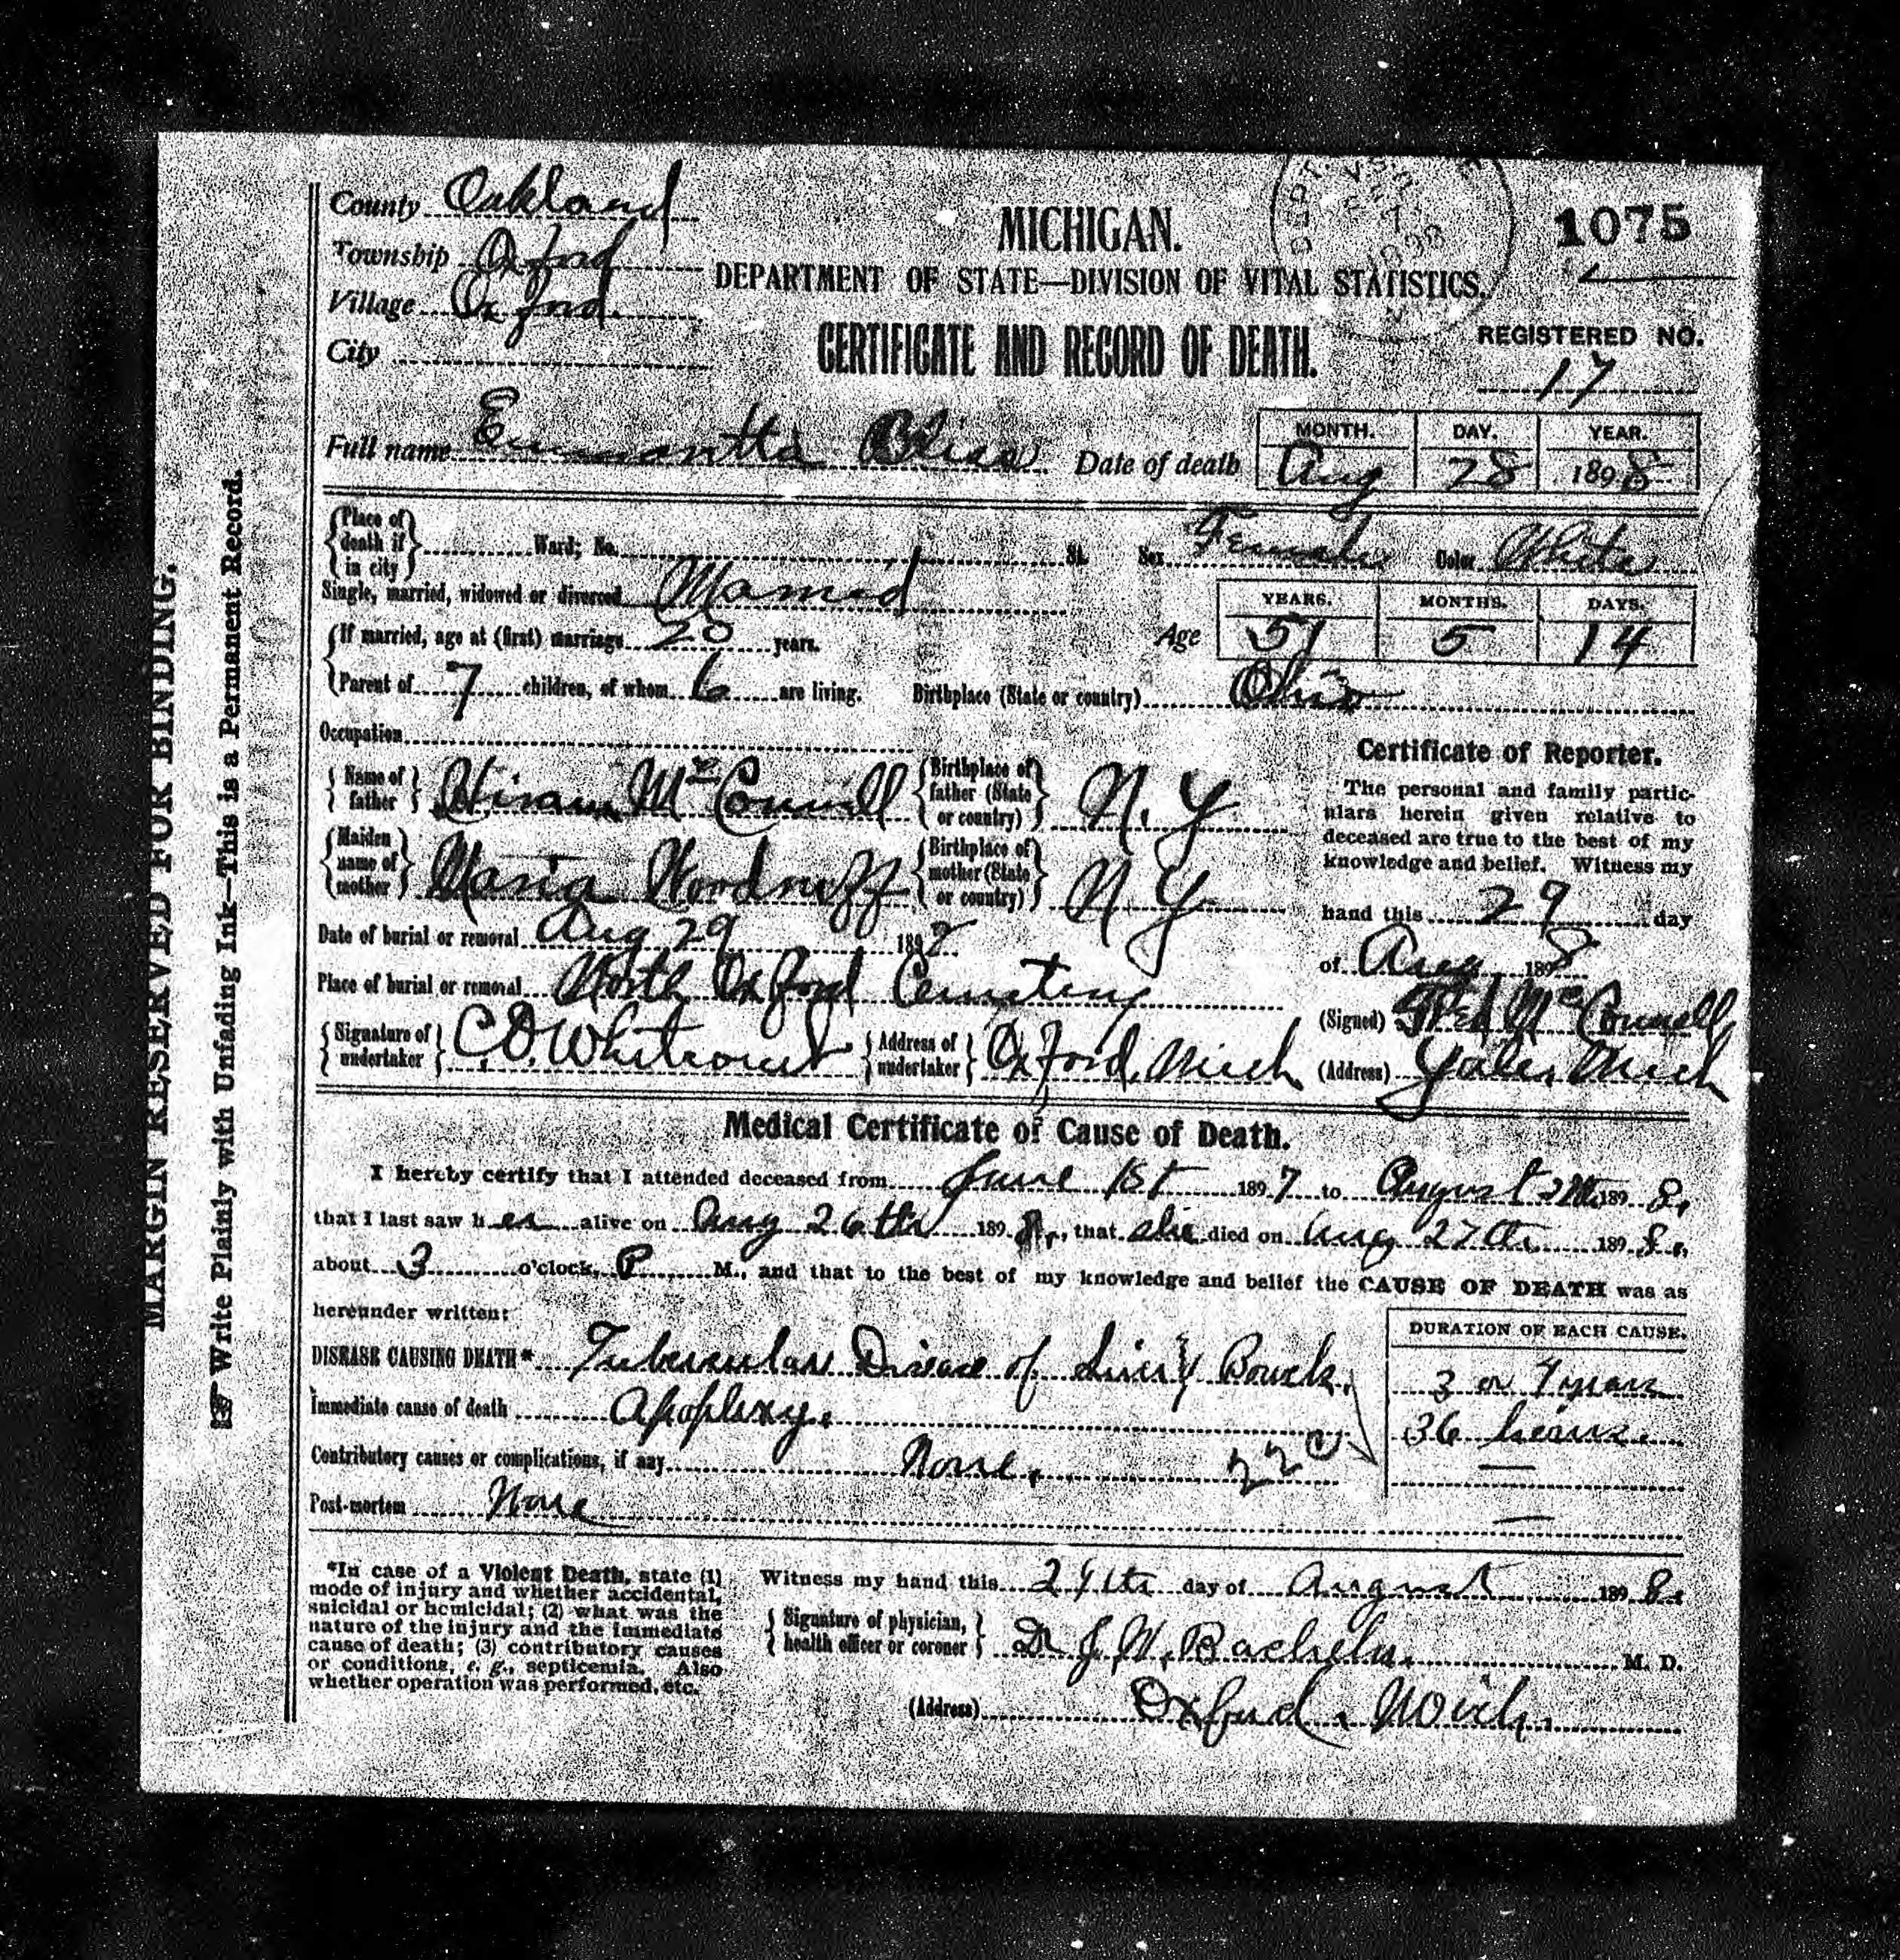 County Oakland
Township Oxford
Village Oxford
City
MICHIGAN.
DEPARTMENT OF STATE—DIVISION OF VITAL STATISTICS.
CERTIFICATE AND RECORD OF DEATH.
1075
REGISTERED NO.
17
Full name Bliss Date of death
MONTH. DAY. YEAR.
Aug 28 1898
{Place of death if in city} Ward; No. St. Sex Female Color White
Single, married, widowed or divorced Married
{If married, age at (first) marriage 20 years.
Age YEARS. MONTHS. DAYS.
51 5 14
{Parent of 7 children, of whom 6 are living. Birthplace (State or country) Ohio
Occupation
{Name of father} Hiram McConnell {Birthplace of father (State or country)} N. Y
{Maiden name of mother} Maria Woodruff {Birthplace of mother (State or country)} N. Y
Date of burial or removal Aug 29 189
Place of burial or removal North Oxford Cemetery
{Signature of undertaker} C. D. {Address of undertaker} Oxford, Mich
Certificate of Reporter.
The personal and family partic-
ulars herein given relative to
deceased are true to the best of my
knowledge and belief. Witness my
hand this 29 day
of Aug 1898
(Signed) McConnell
(Address) Yale, Mich
Medical Certificate of Cause of Death.
I hereby certify that I attended deceased from June 1st 1897 to August 1898.
that I last saw her alive on Aug 26th 1898., that she died on Aug 27th 1898.
about 3 o'clock, P M., and that to the best of my knowledge and belief the CAUSE OF DEATH was as
hereunder written:
DURATION OF EACH CAUSE.
DISEASE CAUSING DEATH* Tubercular Disease of Bowels. 3 or 4 years
Immediate cause of death Apoplexy. 36 hours.
Contributory causes or complications, if any None. —
Post-mortem None —
*In case of a Violent Death, state (1)
mode of injury and whether accidental,
suicidal or homicidal; (2) what was the
nature of the injury and the immediate
cause of death; (3) contributory causes
or conditions, e. g., septicemia. Also
whether operation was performed, etc.
Witness my hand this day of August 1898.
{Signature of physician, health officer or coroner} Dr J. W. M. D.
(Address) Oxford. Mich.
MARGIN RESERVED FOR BINDING.
Write Plainly with Unfading Ink—This is a Permanent Record.